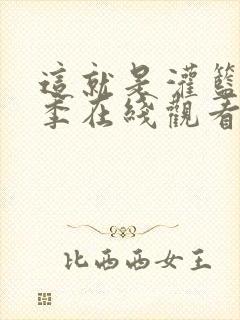 這就是灌籃
季在綫觀看
比西西女王